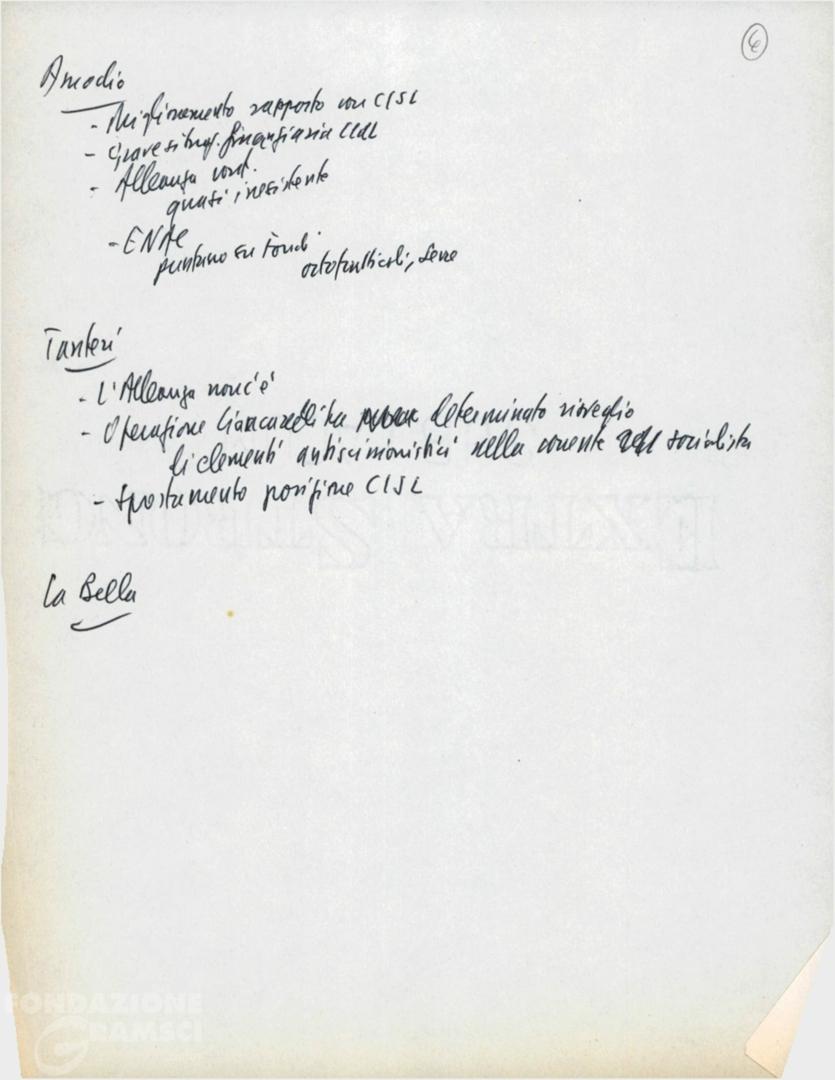 6
Amodio
- Miglioramento rapporto con CISL
- Grave situaz. finanziaria CCdL
- Alleanza cont.
quasi inesistente
- ENAE
puntano su fondi
ortofrutticoli, serre
Tanteri
- L'Alleanza non c'è
- Operazione ha determinato risveglio
di elementi antiscissionistici nella corrente socialista
- Spostamento posizione CISL
La Bella
FONDAZIONE
GRAMSCI